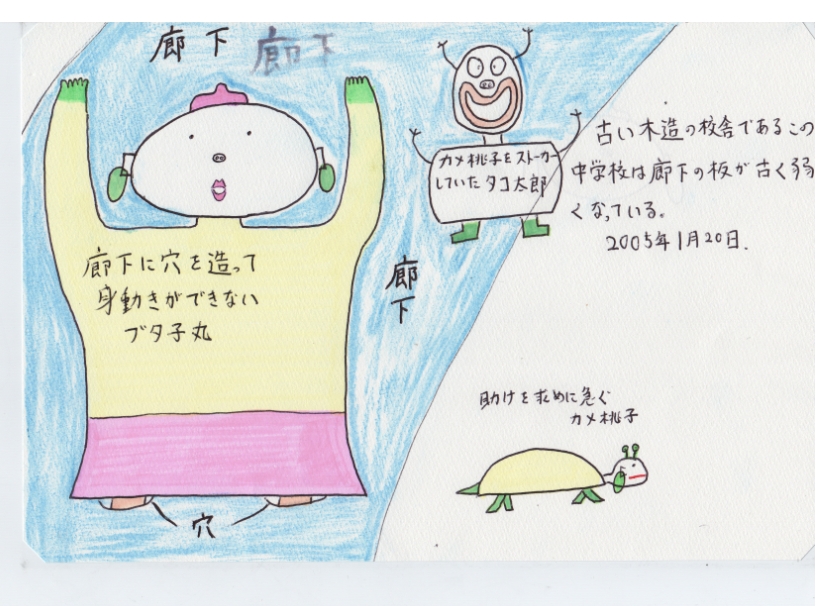 廊下 廊下
カメ桃子をストーカー
していたタコ太郎
古い木造の校舎であるこの
中学校は廊下の板が古く弱
くなっている。
2005年1月20日.
廊下に穴を造って
身動きができない
ブタ子丸
廊下
助けを求めに急ぐ
カメ桃子
穴